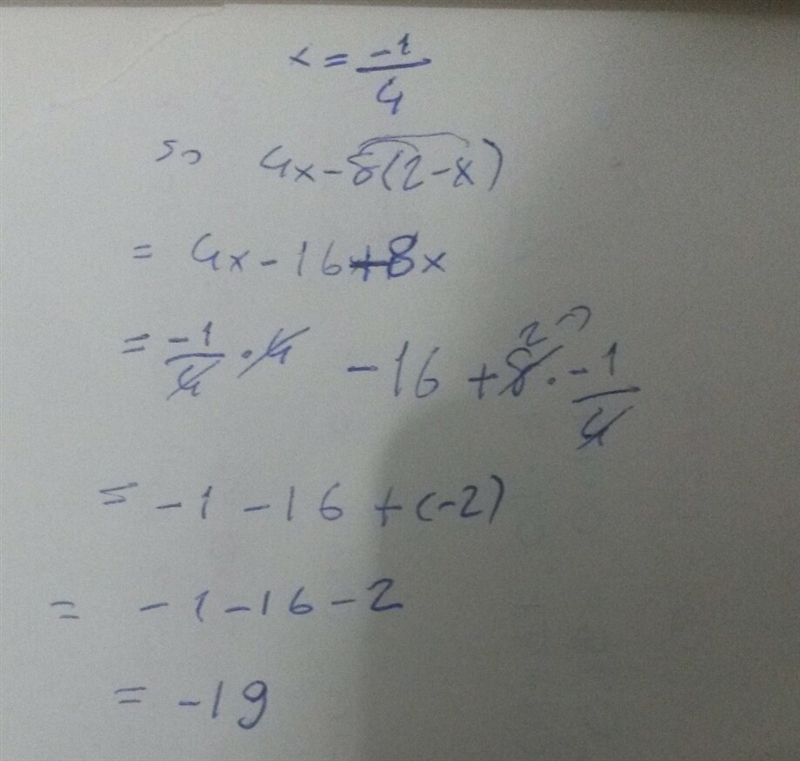 x = -1/4
so 4x - 8(2 - x)
= 4x - 16 + 8x
= -1/4 · 4 - 16 + 8 · -1/4
= -1 - 16 + (-2)
= -1 - 16 - 2
= -19